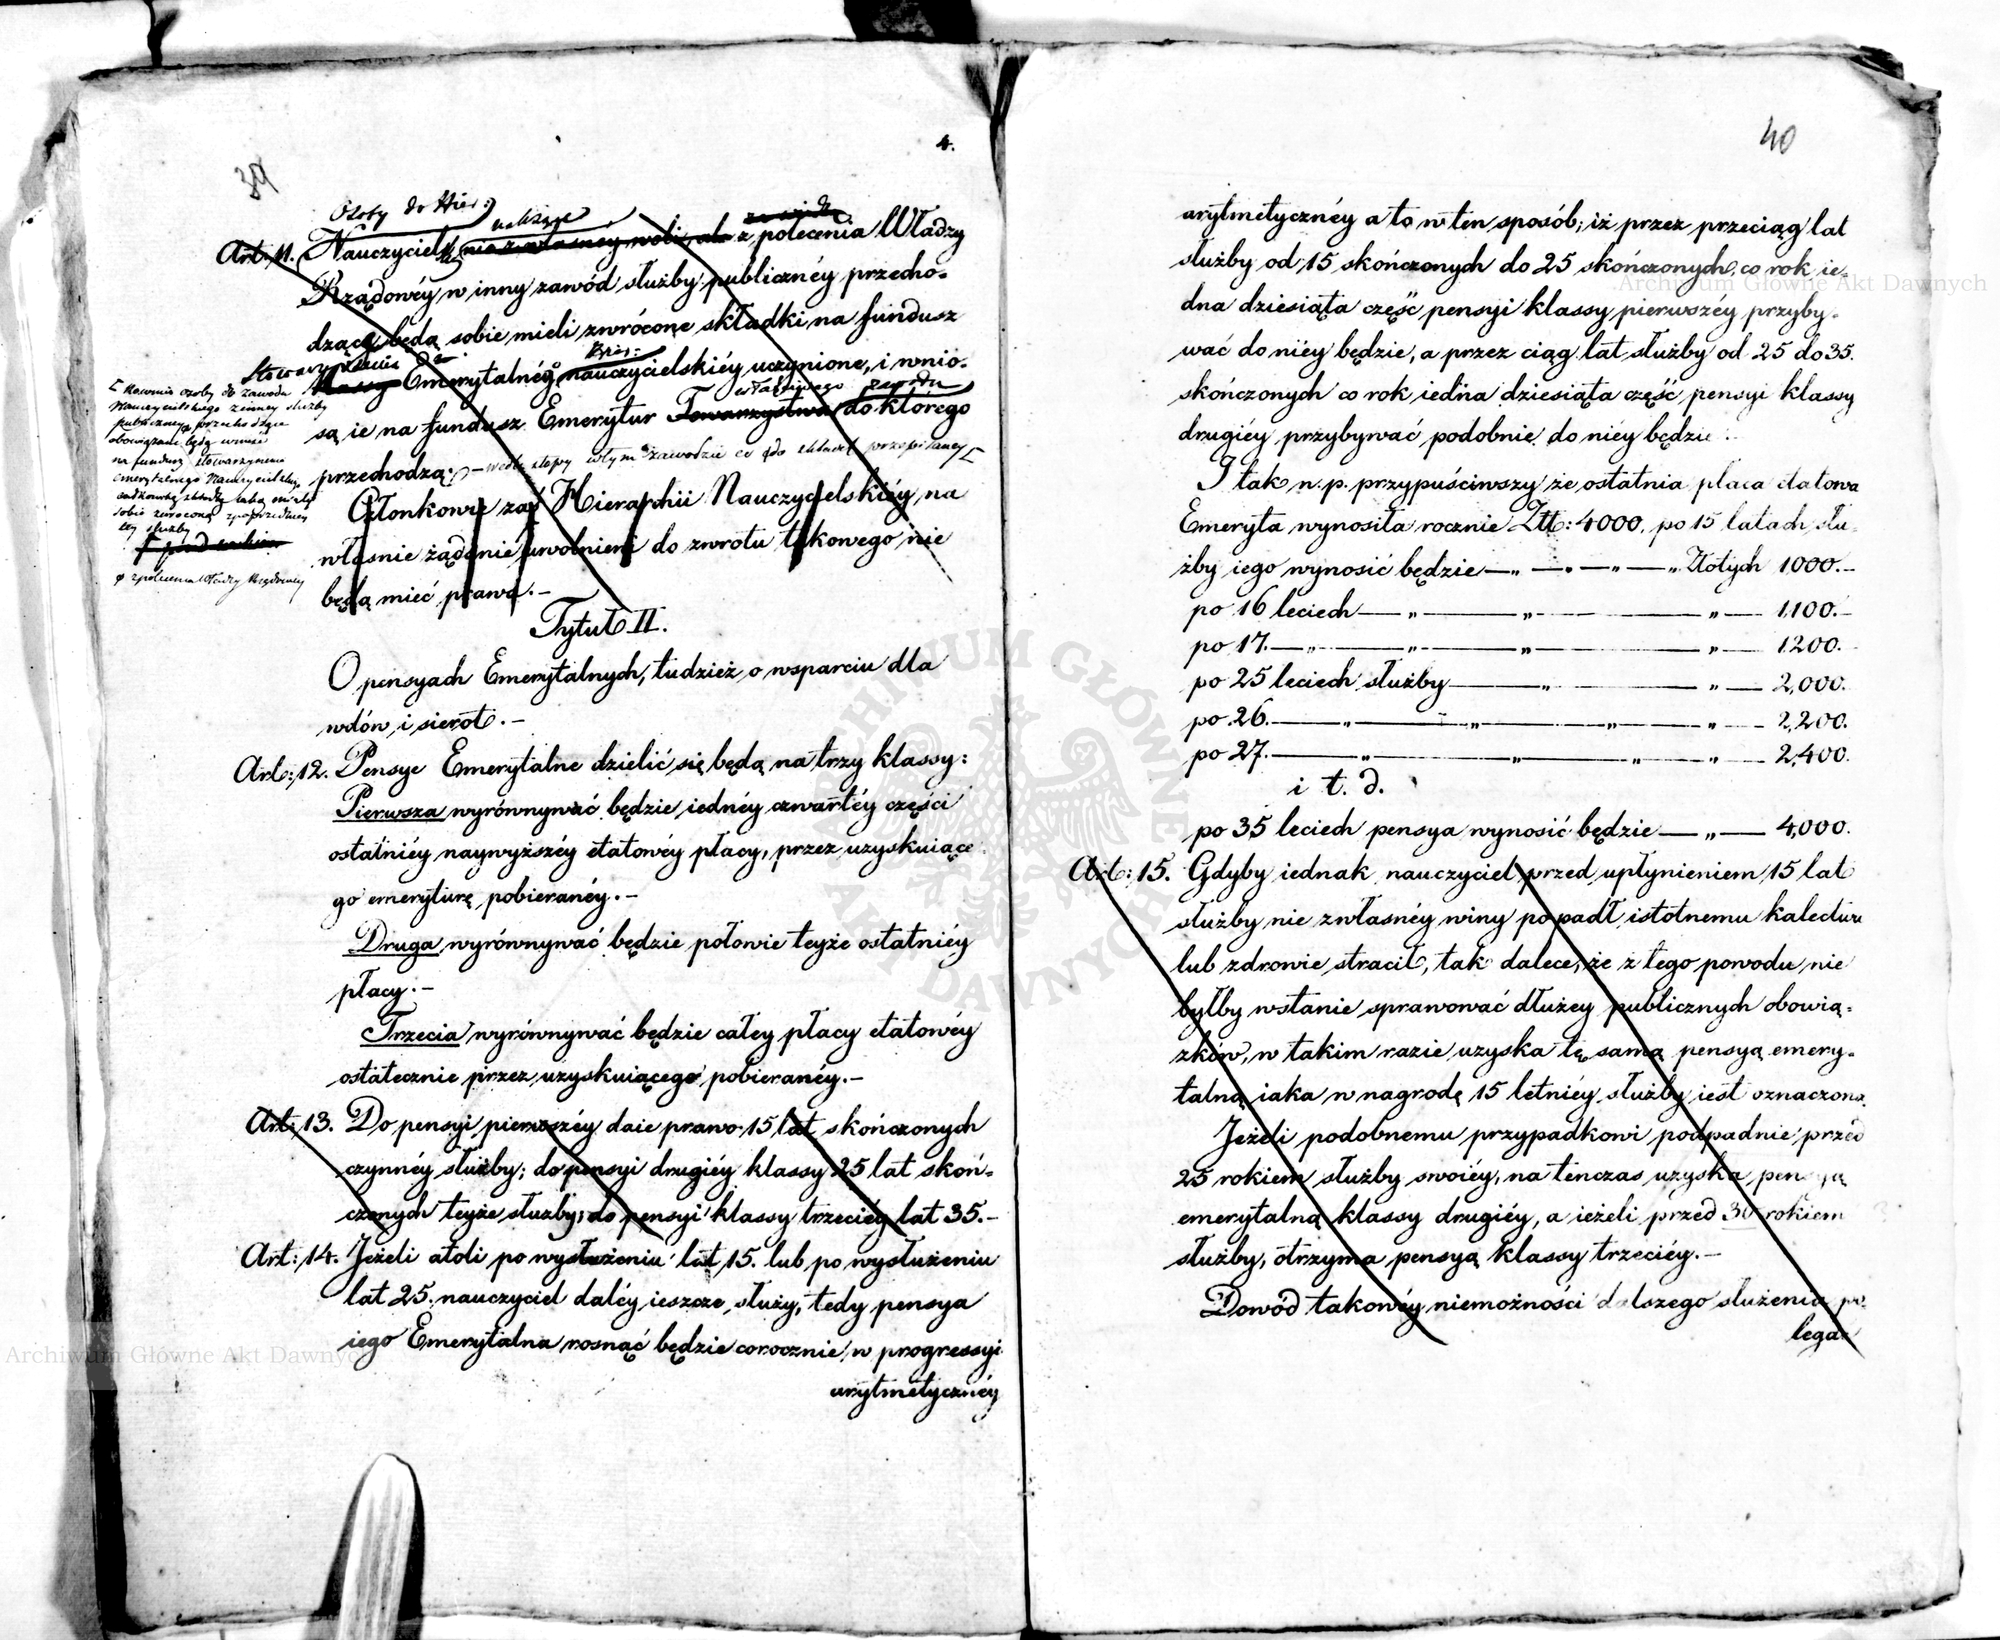 39
4.
Osoby do Hier:
należące
Art: 11. Nauczyciele nie z własney woli, ale z polecenia Władzy
Rządowéy w inny zawód służby publicznéy przecho-
dzące będą sobie mieli zwrócone składki na fundusz
Stowarzyszenia
Kassy Emerytalnéy nauczycielskiéy uczynione, i wnio-
właściwego zawodu
są ie na fundusz Emerytur Towarzystwa do którego
przechodzą; – wedle stopy w tym zawodzie do składek przepisaney
Członkowie zaś Hierarchii Nauczycielskiéy, na
własnie żądanie uwolnieni do zwrotu takowego nie
będą mieć prawa. –
[ Rownie osoby do zawodu
Nauczycielskiego z inney służby
publiczney przechodzące
obowiązani będą wnieść
na fundusz Stowarzyszenia
emerytalnego Nauczycielskiego
składkę
sobie zwróconą z poprzedniey
tey służby
z polecenia Władzy Rządowey
Tytuł II.
O pensyach Emerytalnych, tudzież o wsparciu dla
wdów i sierot. –
Art: 12. Pensye Emerytalne dzielić się będą na trzy klassy:
Pierwsza wyrównywać będzie iednéy czwartéy części
ostatniéy naywyższéy etatowéy płacy, przez uzyskuiące
go emeryturę pobieranéy. –
Druga wyrównywać będzie połowie teyże ostatniéy
płacy. –
Trzecia wyrównywać będzie całey płacy etatowéy
ostatecznie przez uzyskuiącego pobieranéy. –
Art: 13. Do pensyi pierwszéy daie prawo 15 lat skończonych
czynnéy służby; do pensyi drugiéy klassy 25 lat skoń-
czonych teyże służby; do pensyi klassy trzeciéy lat 35. –
Art: 14. Jeżeli atoli po wysłużeniu lat 15. lub po wysłużeniu
lat 25. nauczyciel daléy ieszcze służy, tedy pensya
iego Emerytalna rosnąć będzie corocznie w progressyi
arytmetycznéy
40
arytmetycznéy a to w ten sposób; iż przez przeciąg lat
służby od 15 skończonych do 25 skończonych, co rok ie-
dna dziesiąta część pensyi klassy pierwszéy przyby-
wać do niéy będzie, a przez ciąg lat służby od 25 do 35.
skończonych co rok iedna dziesiąta część pensyi klassy
drugiéy przybywać podobnie do niéy będzie.
I tak n.p. przypuściwszy że ostatnia płaca etatowa
Emeryta wynosiła rocznie Złt: 4000. po 15 latach słu-
żby iego wynosić będzie — „ — „ — „ — „ Złotych 1000. –
po 16 leciech — „ — „ — „ — 1100. –
po 17. — „ — „ — „ — „ — 1200.
po 25 leciech służby — „ — „ — 2,000.
po 26. — „ — „ — „ — „ — 2,200.
po 27. — „ — „ — „ — „ — 2,400.
i t. d.
po 35 leciech pensya wynosić będzie — „ — 4,000.
Art: 15. Gdyby iednak nauczyciel przed upłynieniem 15 lat
służby nie z własnéy winy popadł istotnemu kalectwu
lub zdrowie stracił, tak dalece, że z tego powodu nie
byłby w stanie sprawować dłużey publicznych obowią-
zków, w takim razie uzyska tę samą pensyą emery-
talną iaka w nagrodę 15 letniéy służby iest oznaczona
Jeżeli podobnemu przypadkowi podpadnie przed
25 rokiem służby swoiéy, na tenczas uzyska pensyą
emerytalną klassy drugiéy, a ieżeli przed 30 rokiem
służby, otrzyma pensyą klassy trzeciéy. –
Dowód takowéy niemożności dalszego służenia po-
legać
Archiwum Główne Akt Dawnych
Archiwum Główne Akt Dawnych
ARCHIWUM GŁÓWNE AKT DAWNYCH